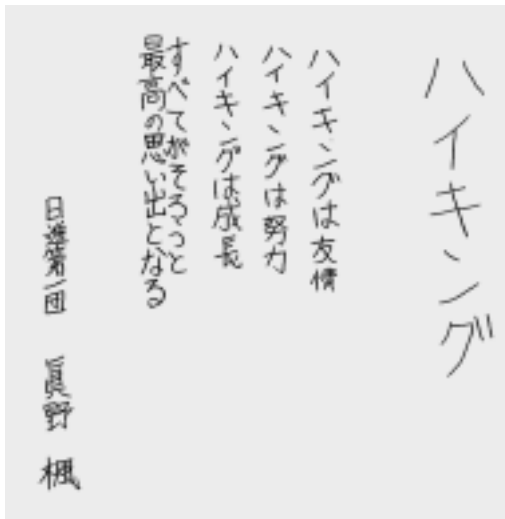 ハイキング
ハイキングは友情
ハイキングは努力
ハイキングは成長
すべてがそろうと
最高の思い出となる
日進第一団 眞野 楓